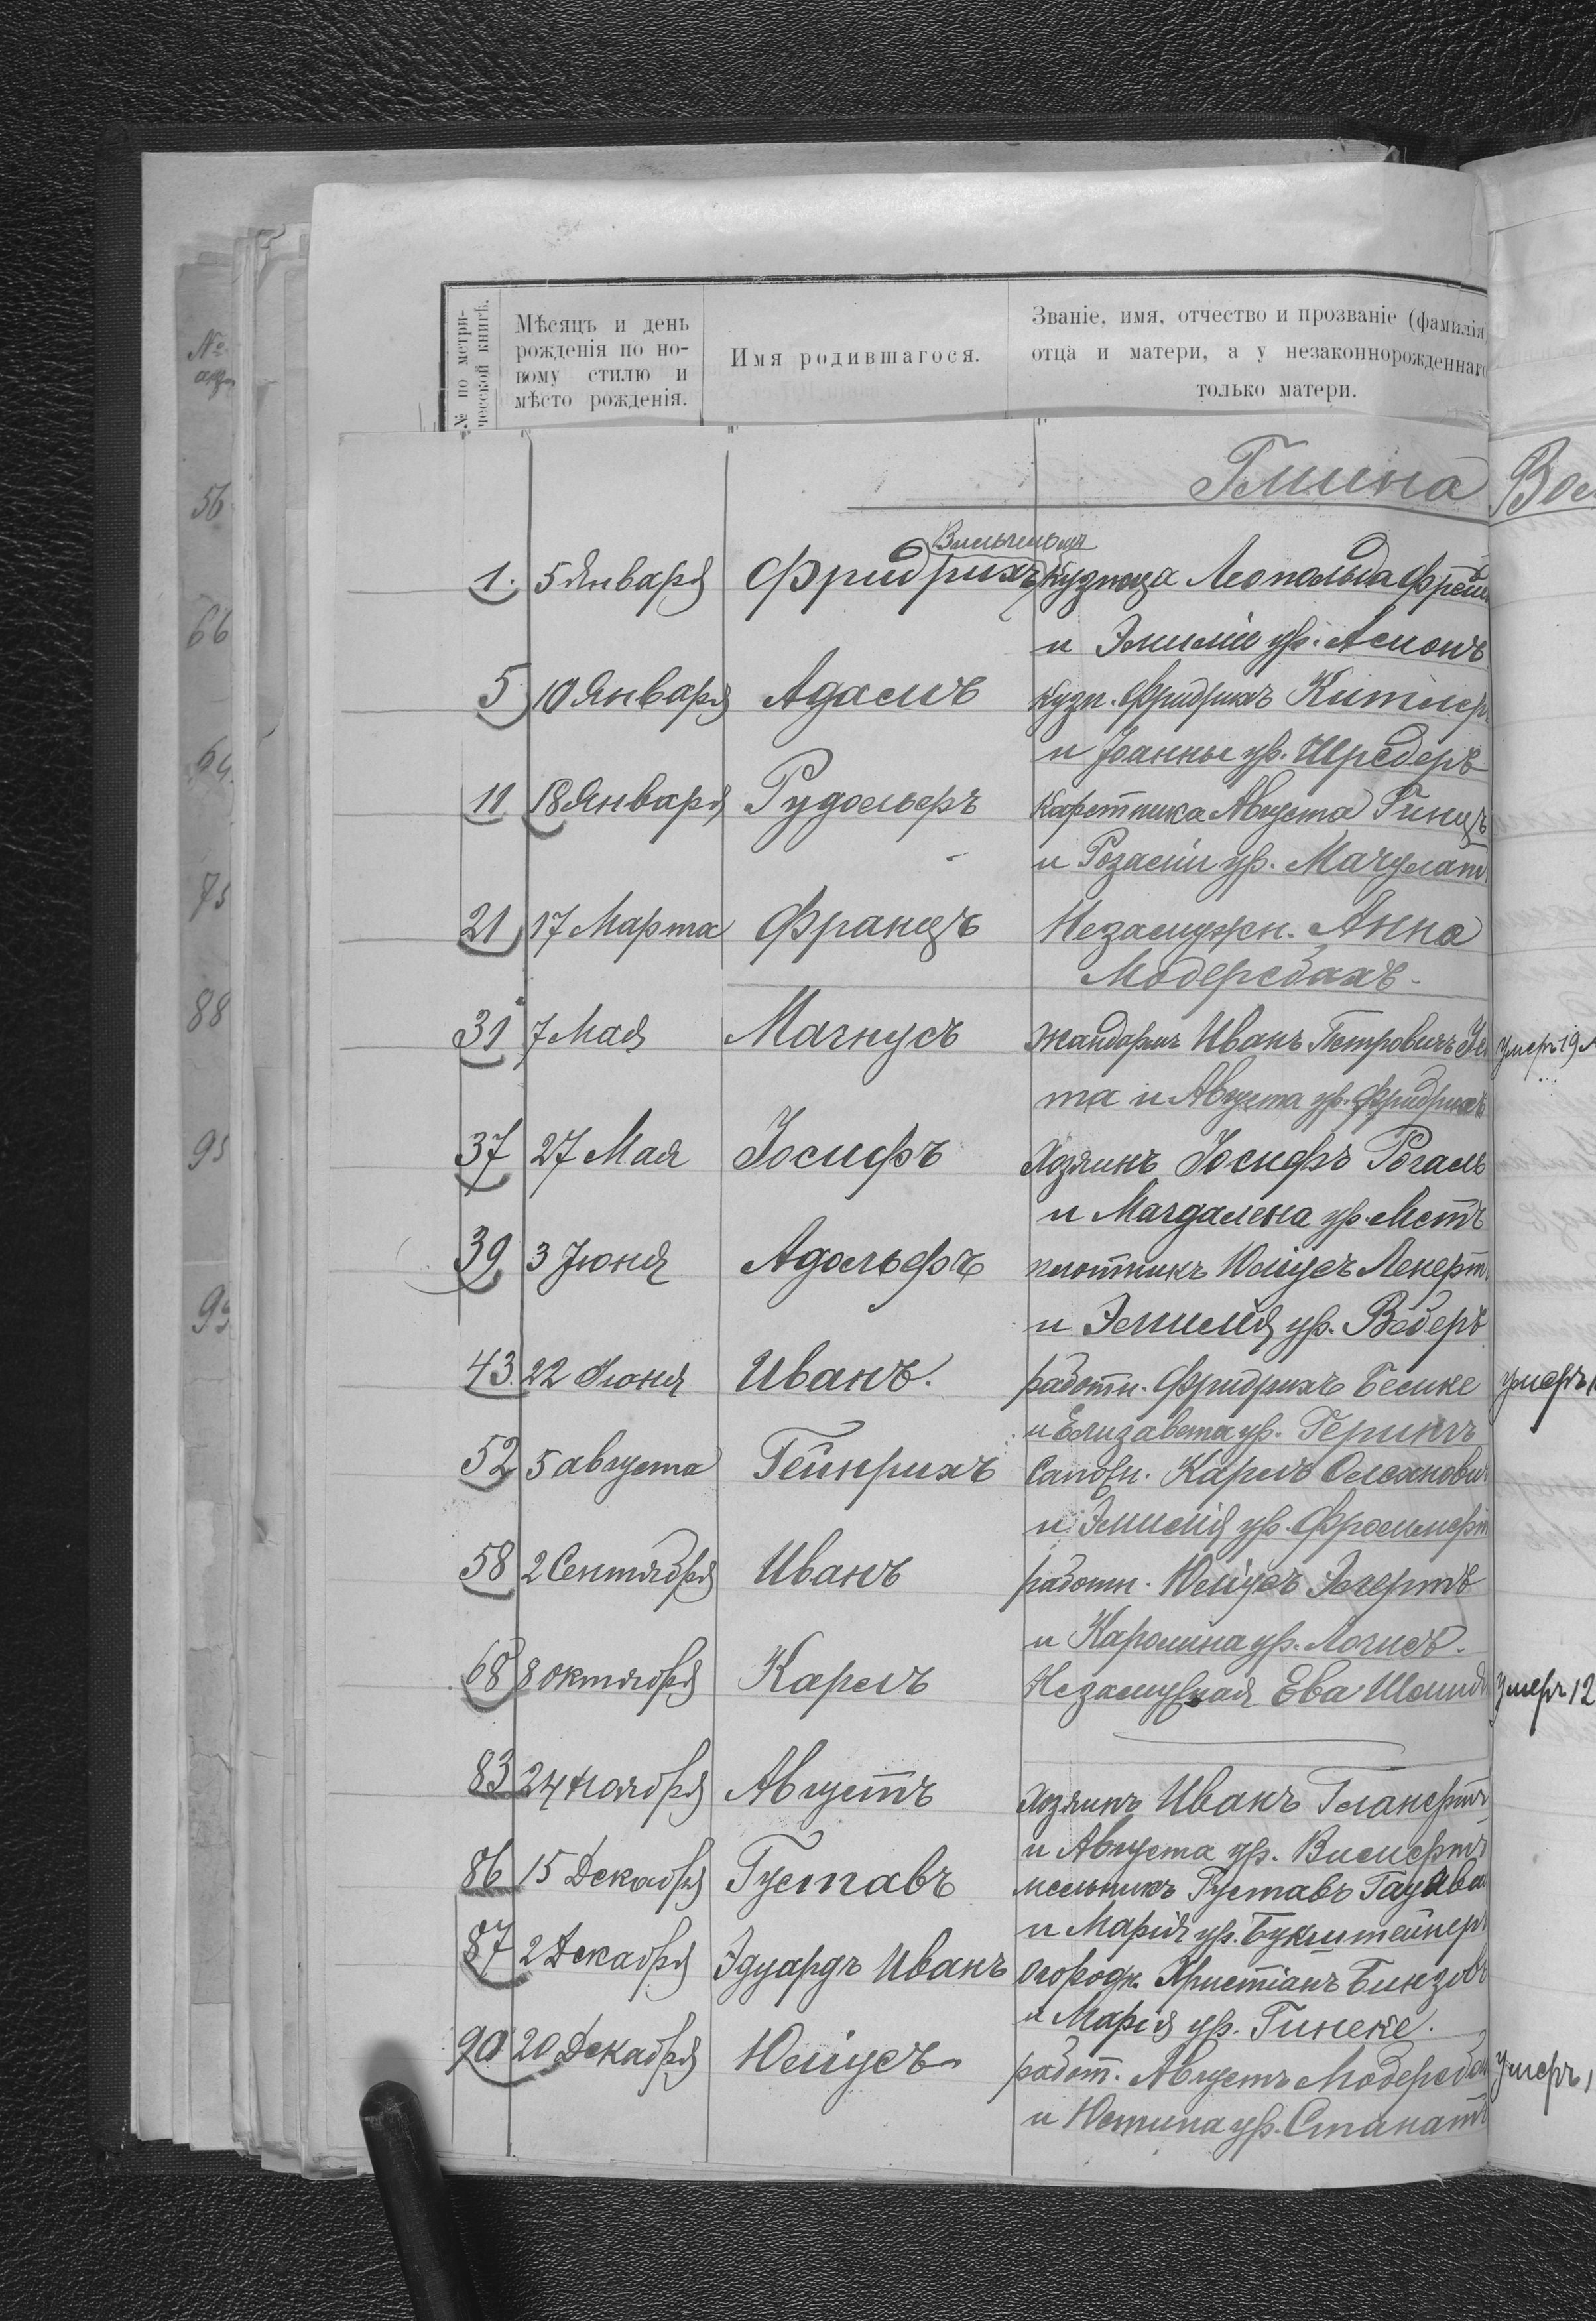 № по метри-
ческой книгѣ.
Мѣсяцъ и день
рожденія по но-
вому стилю и
мѣсто рожденія.
Имя родившагося.
Званіе, имя, отчество и прозваніе (фамилія
отца и матери, а у незаконнорожденнаго
только матери.
№
56
66
64
75
88
95
99
Гмина
Вильгельмъ
1. 5 Января Фридрихъ Кузнеца Леопольда
и Эмиліи ур.
5 10 Января Адамъ Кузн. Фридрихъ Китлеръ
и Іоанны ур. Шредеръ
11 18 Января Рудольфъ Каретника Августа Гинцъ
и Розаліи ур.
21 17 Марта Францъ Незамужн. Анна
Модерсбахъ.
31 7 Мая Магнусъ Жандармъ Иванъ Петровичъ
та и Августа ур. Фридрихъ
Умеръ 19
37 27 Мая Іосифъ Хозяинъ Іосифъ Рогаль
и Магдалена ур.
39 3 Іюня Адольфъ плотникъ Юліусъ Ленертъ
и Эмилія ур. Веберъ
43 22 Іюня Иванъ. работн. Фридрихъ Бемке
умеръ
и Елизавета ур. Герингъ
52 5 августа Гейнрихъ Сапожн. Карлъ
и Эмилія ур.
58 2 Сентября Иванъ работн. Юліусъ Эгертъ
и Каролина ур.
68 8 октября Карлъ Незамужняя Ева Шмидтъ
Умеръ 12
83 24 Ноября Августъ Хозяинъ Иванъ Гланертъ
и Августа ур.
86 15 Декабря Густавъ мельникъ Густавъ
и Марія ур.
87 2 Декабря Эдуардъ Иванъ Огородн. Христіанъ Бинзовъ
и Марія ур. Гинеке.
90 20 Декабря Юліусъ работ. Августъ Модерсбах
Умеръ
и Юстина ур.